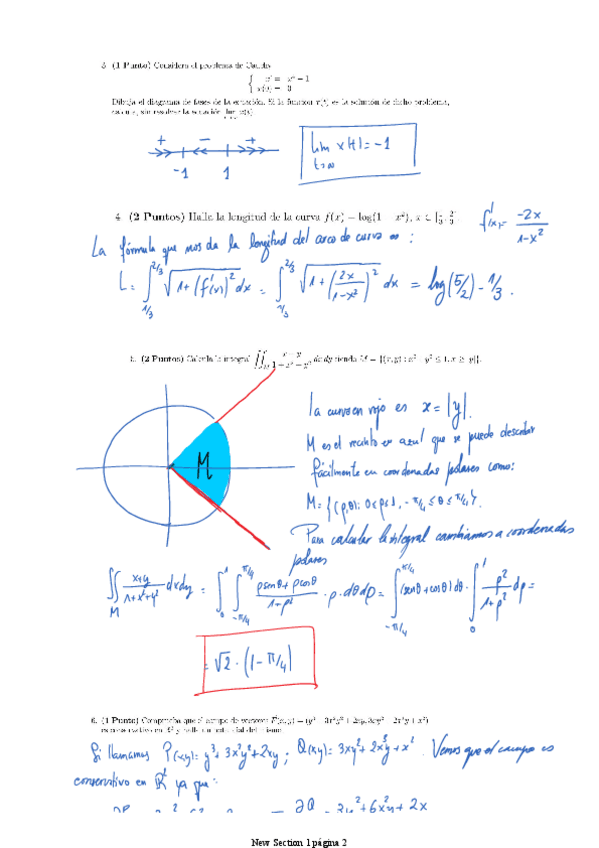 3. (1 Punto) Considera el problema de Cauchy
Dibuja el diagrama de fases de la ecuación. Si la función x(t) es la solución de dicho problema,
calcula, sin resolver la ecuación lim x(t).
+ − +
-1 1
lim x(t) = -1
t→∞
4. (2 Puntos) Halle la longitud de la curva f(x) = log(1 − x²), x ∈ [1/3, 2/3].
f'(x) = -2x / 1-x²
La fórmula que nos da la longitud del arco de curva es :
L = ∫_{1/3}^{2/3} √(1+(f'(x))²) dx = ∫_{1/3}^{2/3} √(1+(2x/(1-x²))²) dx = log(5/2) - 1/3 .
5. (2 Puntos) Calcula la integral
M
La curva en rojo es x = |y|.
M es el recinto en azul que se puede describir
fácilmente en coordenadas polares como:
M = {(ρ,θ): 0<ρ≤1, -π/4 ≤ θ ≤ π/4}.
Para calcular la integral cambiamos a coordenadas
polares
∬_M (x+y)/(1+x²+y²) dxdy = ∫_0^1 ∫_{-π/4}^{π/4} (ρ senθ + ρ cosθ)/(1+ρ²) · ρ · dθ dρ = ∫_{-π/4}^{π/4} (senθ + cosθ) dθ · ∫_0^1 ρ²/(1+ρ²) dρ =
= √2 · (1 - π/4)
6. (1 Punto) Comprueba que el campo de vectores
es conservativo en
Si llamamos P(x,y) = y³ + 3x²y² + 2xy ; Q(x,y) = 3xy² + 2x³y + x² . Vemos que el campo es
conservativo en R² ya que:
= ∂Q = 3y² + 6x²y + 2x
New Section 1 página 2